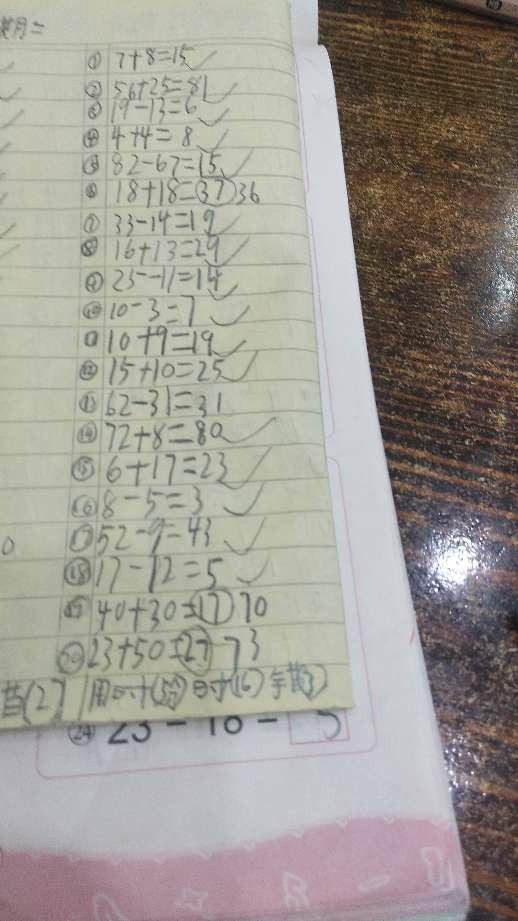 ① 7+8=15
② 56+25=81
③ 19-13=6
④ 4+4=8
⑤ 82-67=15
⑥ 18+18=37 36
⑦ 33-14=19
⑧ 16+13=29
⑨ 25-11=14
⑩ 10-3=7
⑪ 10+9=19
⑫ 15+10=25
⑬ 62-31=31
⑭ 72+8=80
⑮ 6+17=23
⑯ 8-5=3
⑰ 52-9=43
⑱ 17-12=5
⑲ 40+30=17 70
⑳ 23+50=27 73
0
用时(5分)
㉔ 23-18=5